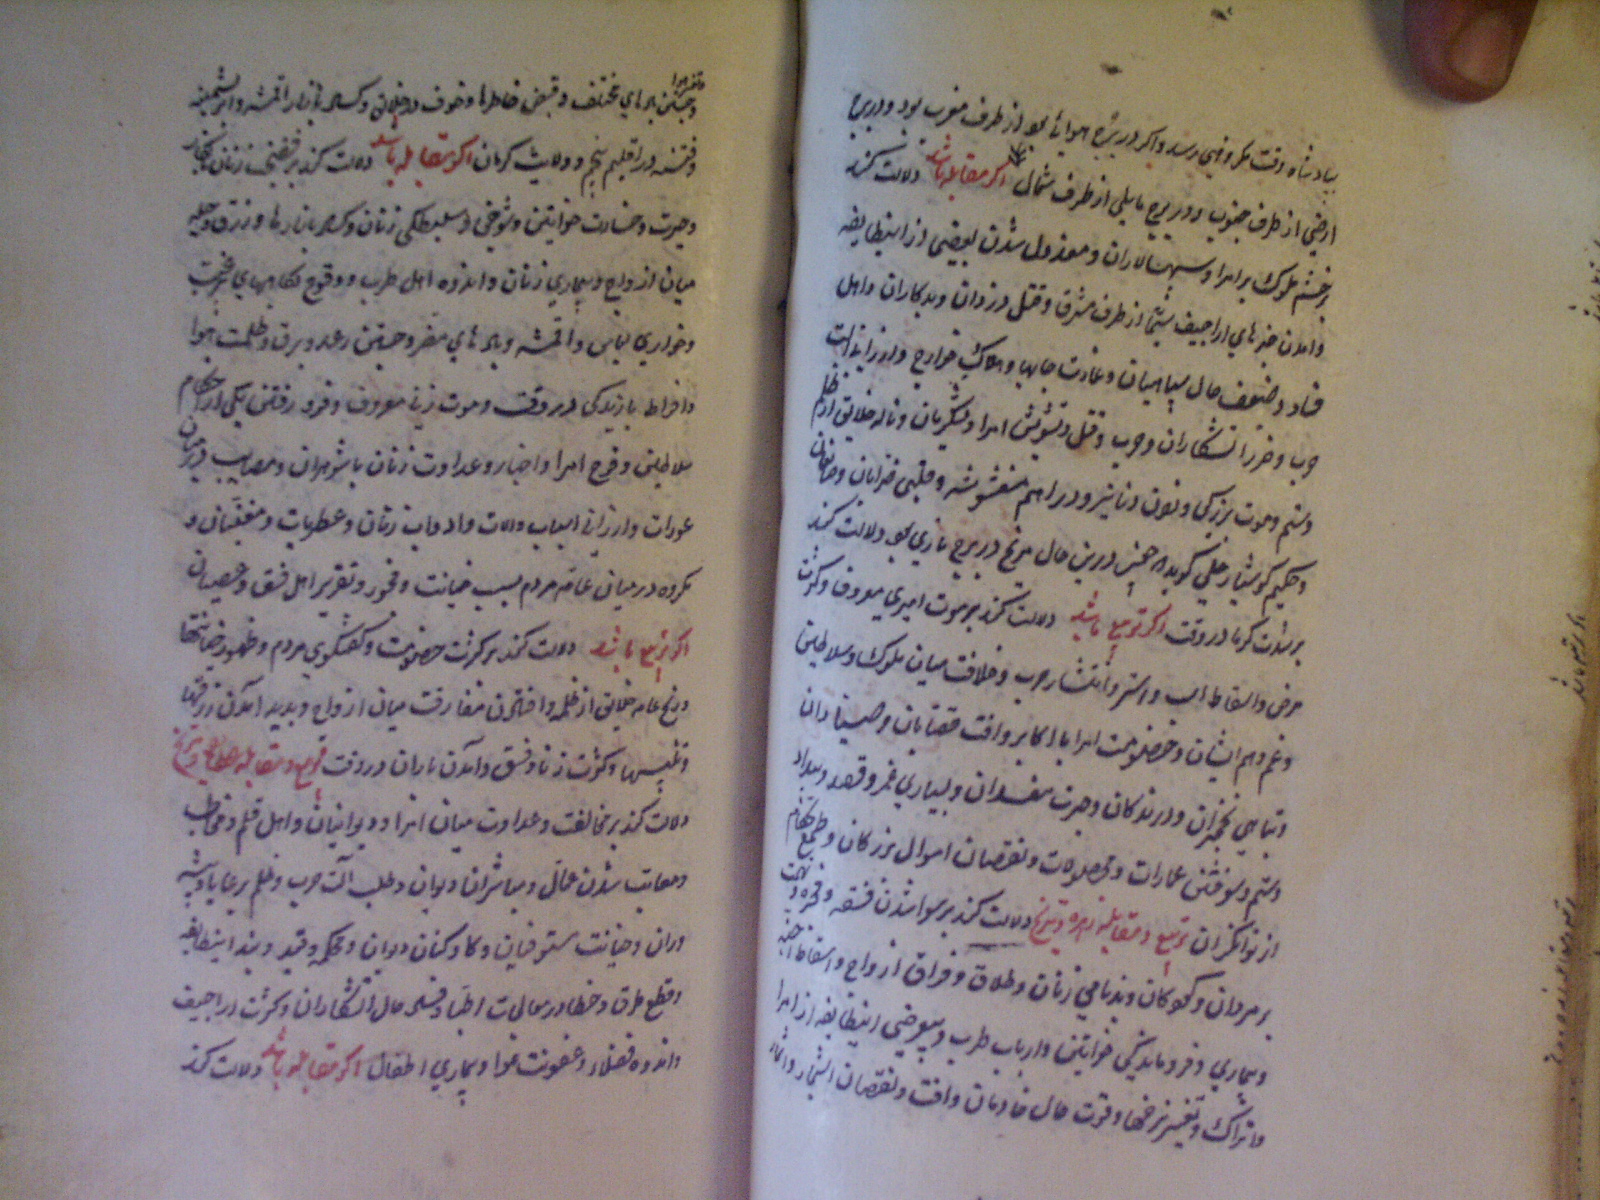 بپادشاه وقت مکروهی رسد و اکر در برج هوائی بود از طرف مغرب بود و در برج
ارضی از طرف جنوب و در برج مایلی از طرف شمال اکر مقابله باشد دلالت کند
بر خشم ملوک بر امرا و سپهسالاران و معزول شدن بعضی از اینطایفه
و آمدن خبرهای اراجیف از طرف مشرق و قتل دزدان و بدکاران و اهل
فساد و ضعف حال سپاهیان و غارت جایها و هلاک خوارج و
چوب و ضرر آتشکاران و حرب و قتل و تشویش امرا و لشکریان و ناله خلایق از ظلم
و ستم و موت بزرکی و خون و دراهم مغشوشه و قلبی ضرابان و
و حکیم کوشیار جیلی کوید همچنین درین حال مریخ در برج ناری بود دلالت کند
بر شدت کرما در وقت اکر تربیع باشد دلالت کند بر موت امیری معروف و کثرت
مرض و اسقاط اسب و استر و انتشار حرب و خلافت میان ملوک و سلاطین
و غم و هم ایشان و خصومت امرا با اکابر و آفت قصابان و صیادان
و تباهی نخجیران و درندکان و حیرت مفسدان و بسیاری غمز و قصد و بیداد
و ستم و سوختن عمارات و محصولات و نقصان اموال بزرکان و طمع حکام
از توانکران تربیع و مقابله زهره و مریخ دلالت کند بر رسوا شدن فسقه و فجره و
بر مردان و کودکان و بدنامی زنان و طلاق و فراق ازواج و اسقاط
و بیماری و فروماندکی خواتین و ارباب طرب و اینطایفه از امرا
و اتراک و تغییر نرخها و قوت حال خادمان و آفت و نقصان اشجار و اثمار
و جستن بادهای مختلف و قبض خاطرها و خوف و کساد بازار اقمشه و ابریشمینه
و فتنه در اقلیم پنجم و ولایت کرمان اکر مقابله باشد دلالت کند بر فضیحت زنان
و حیرت و خسارت خواتین و شوخی و سلیطکی زنان و کساد بازارها و زرق و حیله
میان ازواج و بیماری زنان و اندوه اهل طرب و وقوع نکاحهای
و خواری لباس و اقمشه و بادهای مضر و جستن رعد و برق و ظلمت هوا
و افراط بارندکی در وقت و موت زنی معروف و فرو رفتن یکی از حکام
سلاطین و فرح امرا و اخبار و عداوت زنان با شوهران و مصایب در میان
عورات و ارزانی اسباب و آلات و ادوات زنان و عطریات و مغنیان و
مکروه در میان عامه مردم بسبب خیانت و فجور و تقریر اهل فسق و عصیان
اکر تربیع باشد دلالت کند بر کثرت خصومت و کفتکوی مردم و ظهور خیانتها
و رنج عامه خلایق از ظلمه و افتادن مفارقت میان ازواج و بدید آمدن زرقها
و تلبیسها و کثرت زنا و فسق و آمدن باران در وقت تربیع و مقابله عطارد و مریخ
دلالت کند بر مخالفت و عداوت میان امرا و دیوانیان و اهل قلم و
و معاتب شدن عمال و مباشران دیوان و طلب آلت حرب و ظلم بر رعایا و پیشه
وران و خیانت مستوفیان و کارکنان دیوان و قید و بند اینطایفه
و قطع طرق و خطا در معالجات اطبا و حال آتشکاران و کثرت اراجیف
و اندوه فضلا و عفونت هوا و بیماری اطفال اکر مقابله باشد دلالت کند